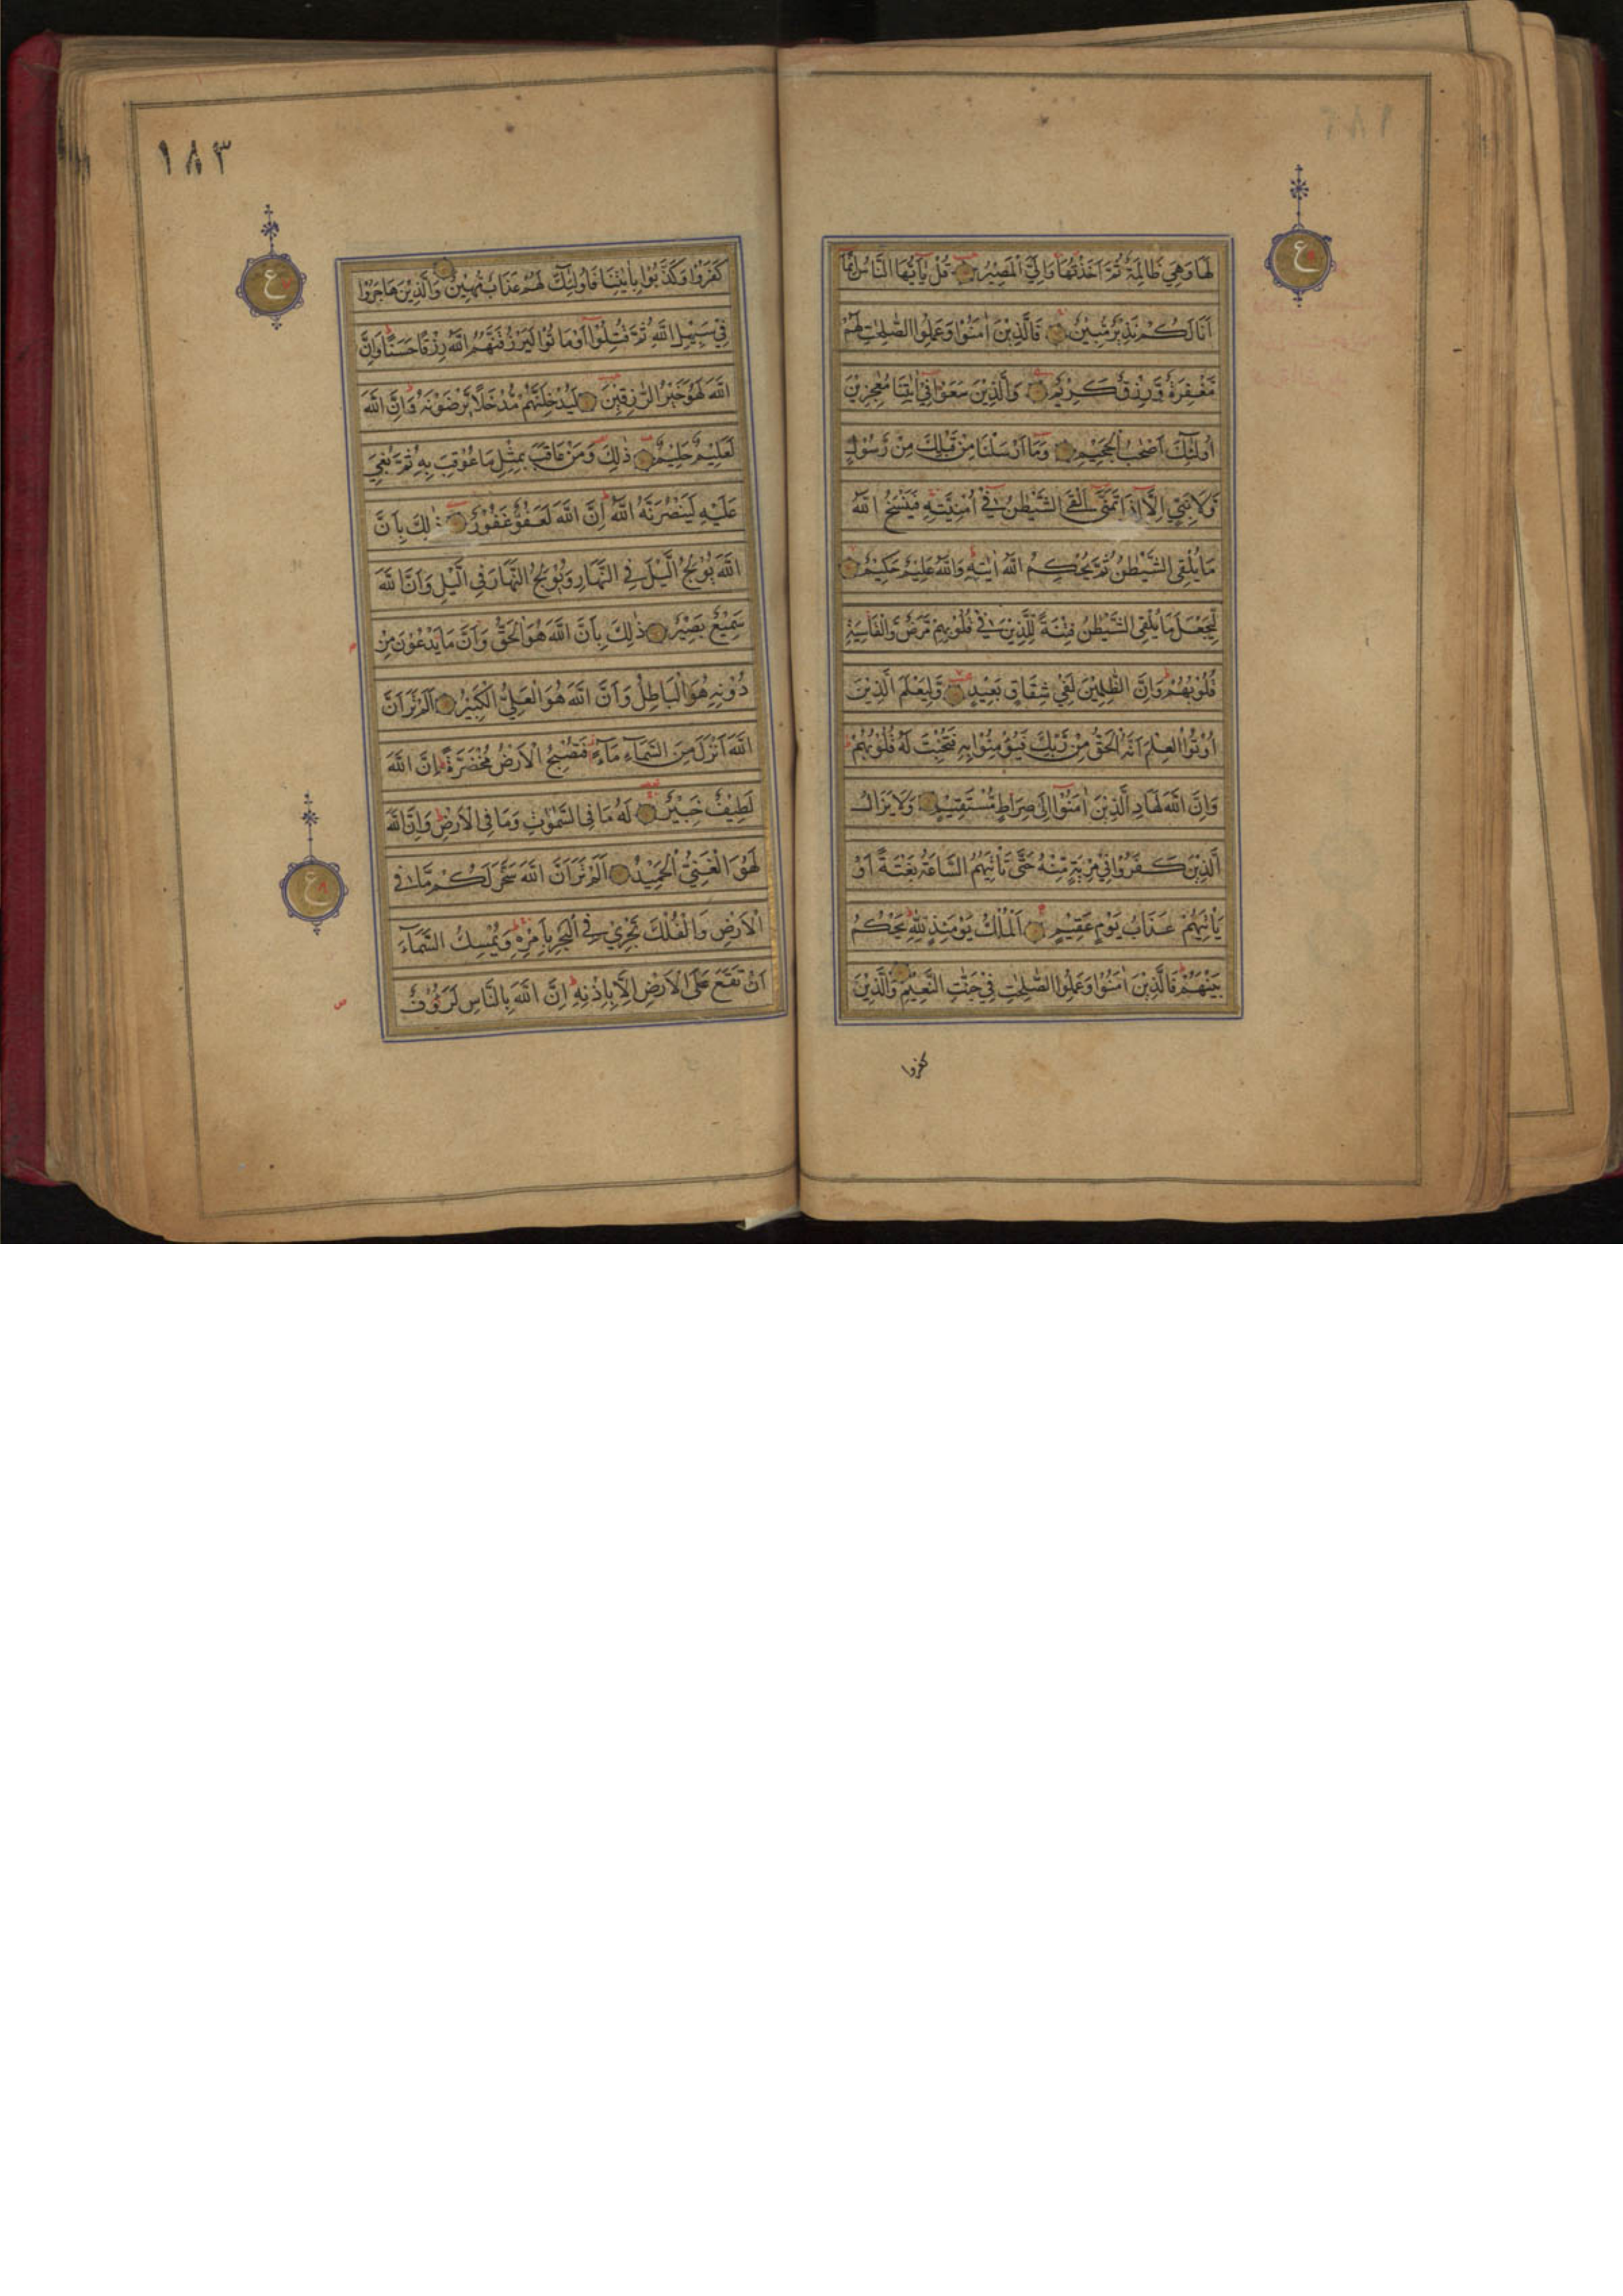 لَهَا وَهِيَ ظَالِمَةٌ ثُمَّ اَخَذْتُهَا وَاِلَيَّ الْمَصِيْرُ قُلْ يٰٓاَيُّهَا النَّاسُ اِنَّمَآ
اَنَا لَكُمْ نَذِيْرٌ مُّبِيْنٌ فَالَّذِيْنَ اٰمَنُوْا وَعَمِلُوا الصّٰلِحٰتِ لَهُمْ
مَّغْفِرَةٌ وَّرِزْقٌ كَرِيْمٌ وَالَّذِيْنَ سَعَوْا فِيْٓ اٰيٰتِنَا مُعٰجِزِيْنَ
اُولٰٓئِكَ اَصْحٰبُ الْجَحِيْمِ وَمَآ اَرْسَلْنَا مِنْ قَبْلِكَ مِنْ رَّسُوْلٍ
وَّلَا نَبِيٍّ اِلَّآ اِذَا تَمَنّٰٓى اَلْقَى الشَّيْطٰنُ فِيْٓ اُمْنِيَّتِهٖ فَيَنْسَخُ اللّٰهُ
مَا يُلْقِى الشَّيْطٰنُ ثُمَّ يُحْكِمُ اللّٰهُ اٰيٰتِهٖ وَاللّٰهُ عَلِيْمٌ حَكِيْمٌ
لِّيَجْعَلَ مَا يُلْقِى الشَّيْطٰنُ فِتْنَةً لِّلَّذِيْنَ فِيْ قُلُوْبِهِمْ مَّرَضٌ وَّالْقَاسِيَةِ
قُلُوْبُهُمْ وَاِنَّ الظّٰلِمِيْنَ لَفِيْ شِقَاقٍ بَعِيْدٍ وَّلِيَعْلَمَ الَّذِيْنَ
اُوْتُوا الْعِلْمَ اَنَّهُ الْحَقُّ مِنْ رَّبِّكَ فَيُؤْمِنُوْا بِهٖ فَتُخْبِتَ لَهٗ قُلُوْبُهُمْ
وَاِنَّ اللّٰهَ لَهَادِ الَّذِيْنَ اٰمَنُوْٓا اِلٰى صِرَاطٍ مُّسْتَقِيْمٍ وَلَا يَزَالُ
الَّذِيْنَ كَفَرُوْا فِيْ مِرْيَةٍ مِّنْهُ حَتّٰى تَاْتِيَهُمُ السَّاعَةُ بَغْتَةً اَوْ
يَاْتِيَهُمْ عَذَابُ يَوْمٍ عَقِيْمٍ اَلْمُلْكُ يَوْمَئِذٍ لِّلّٰهِ يَحْكُمُ
بَيْنَهُمْ فَالَّذِيْنَ اٰمَنُوْا وَعَمِلُوا الصّٰلِحٰتِ فِيْ جَنّٰتِ النَّعِيْمِ وَالَّذِيْنَ
كفروا
١٨٣
ع
كَفَرُوْا وَكَذَّبُوْا بِاٰيٰتِنَا فَاُولٰٓئِكَ لَهُمْ عَذَابٌ مُّهِيْنٌ وَالَّذِيْنَ هَاجَرُوْا
فِيْ سَبِيْلِ اللّٰهِ ثُمَّ قُتِلُوْٓا اَوْ مَاتُوْا لَيَرْزُقَنَّهُمُ اللّٰهُ رِزْقًا حَسَنًا وَاِنَّ
اللّٰهَ لَهُوَ خَيْرُ الرّٰزِقِيْنَ لَيُدْخِلَنَّهُمْ مُّدْخَلًا يَّرْضَوْنَهٗ وَاِنَّ اللّٰهَ
لَعَلِيْمٌ حَلِيْمٌ ذٰلِكَ وَمَنْ عَاقَبَ بِمِثْلِ مَا عُوْقِبَ بِهٖ ثُمَّ بُغِيَ
عَلَيْهِ لَيَنْصُرَنَّهُ اللّٰهُ اِنَّ اللّٰهَ لَعَفُوٌّ غَفُوْرٌ ذٰلِكَ بِاَنَّ
اللّٰهَ يُوْلِجُ الَّيْلَ فِى النَّهَارِ وَيُوْلِجُ النَّهَارَ فِى الَّيْلِ وَاَنَّ اللّٰهَ
سَمِيْعٌ بَصِيْرٌ ذٰلِكَ بِاَنَّ اللّٰهَ هُوَ الْحَقُّ وَاَنَّ مَا يَدْعُوْنَ مِنْ
دُوْنِهٖ هُوَ الْبَاطِلُ وَاَنَّ اللّٰهَ هُوَ الْعَلِيُّ الْكَبِيْرُ اَلَمْ تَرَ اَنَّ
اللّٰهَ اَنْزَلَ مِنَ السَّمَآءِ مَآءً فَتُصْبِحُ الْاَرْضُ مُخْضَرَّةً اِنَّ اللّٰهَ
لَطِيْفٌ خَبِيْرٌ لَهٗ مَا فِى السَّمٰوٰتِ وَمَا فِى الْاَرْضِ وَاِنَّ اللّٰهَ
لَهُوَ الْغَنِيُّ الْحَمِيْدُ اَلَمْ تَرَ اَنَّ اللّٰهَ سَخَّرَ لَكُمْ مَّا فِى
الْاَرْضِ وَالْفُلْكَ تَجْرِيْ فِى الْبَحْرِ بِاَمْرِهٖ وَيُمْسِكُ السَّمَآءَ
اَنْ تَقَعَ عَلَى الْاَرْضِ اِلَّا بِاِذْنِهٖ اِنَّ اللّٰهَ بِالنَّاسِ لَرَءُوْفٌ
ع